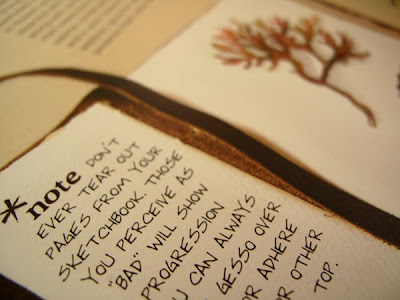 * note DON'T
EVER TEAR OUT
PAGES FROM YOUR
SKETCHBOOK THOSE
YOU PERCEIVE AS
"BAD" WILL SHOW
PROGRESSION
CAN ALWAYS
GESSO OVER
ADHERE
OTHER
TOP.